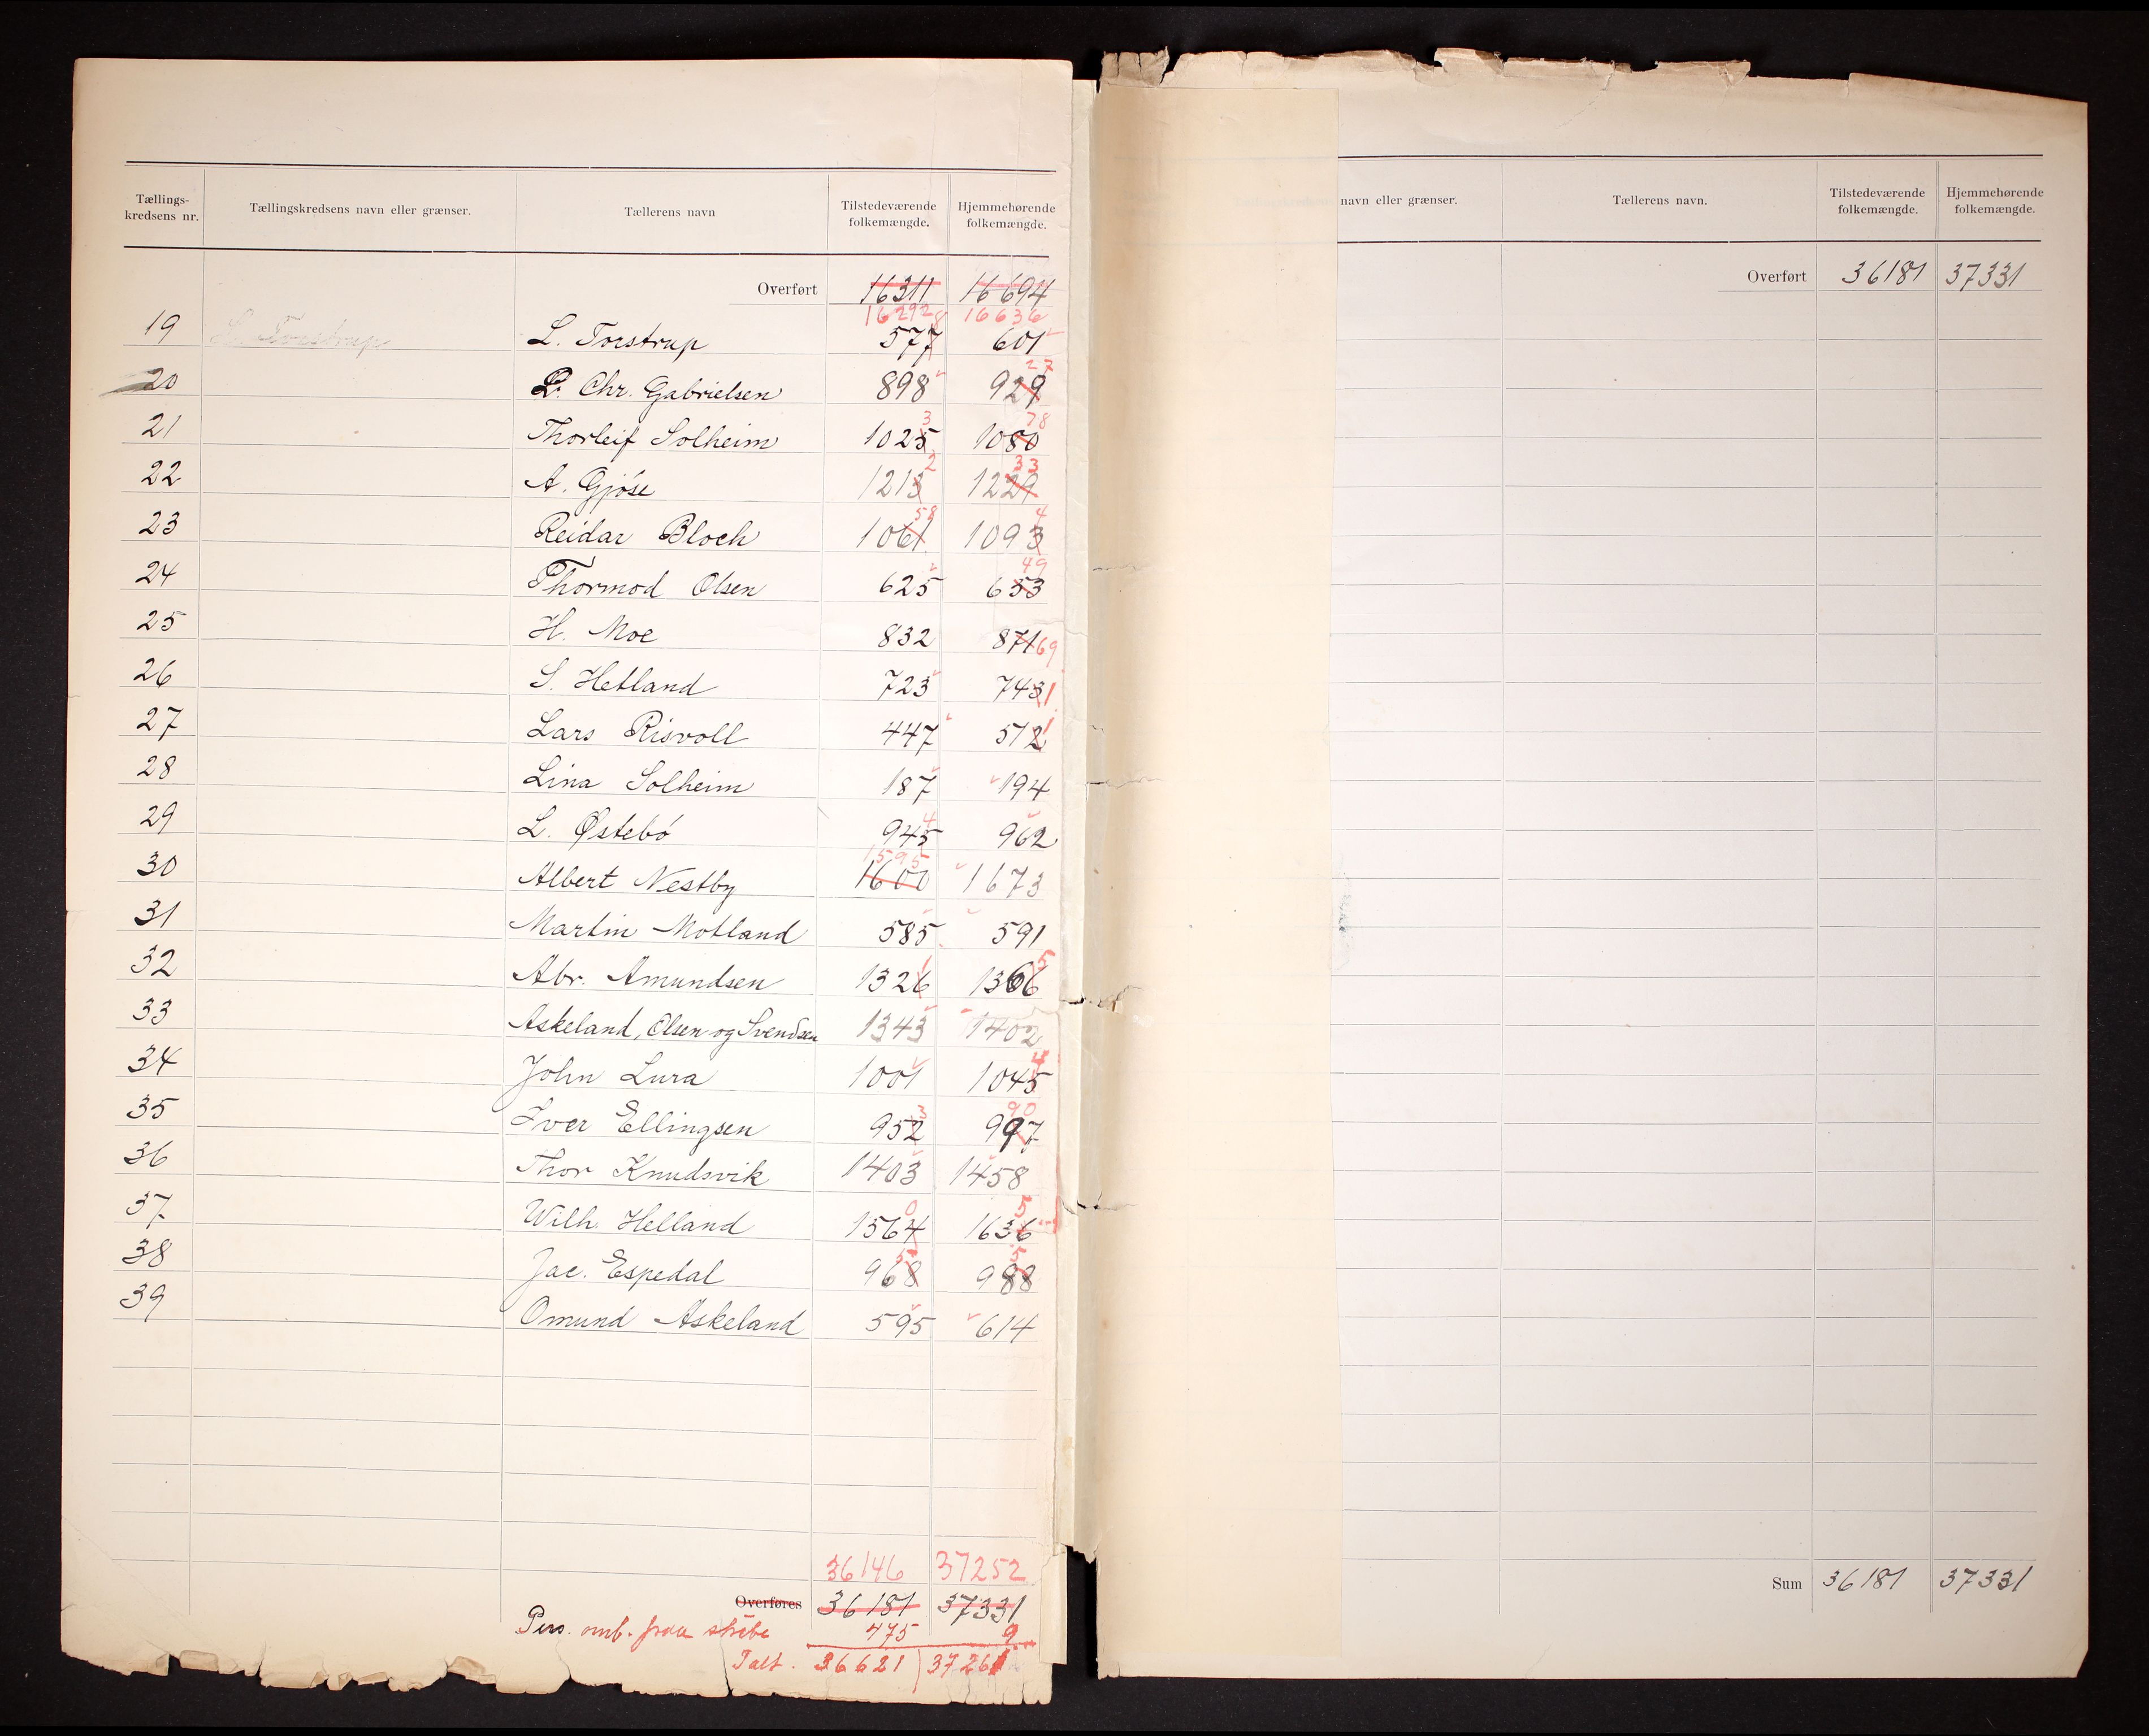 Tællings-
kredsens nr.
Tællingskredsens navn eller grænser.
Tællerens navn
Tilstedeværende
folkemængde.
Hjemmehørende
folkemængde.
Overført 16311 16694
16292 16636
19 L. Torstrup L. Torstrup 577 8 601
20 P. Chr. Gabrielsen 898 929 27
21 Thorleif Solheim 1025 3 1080 78
22 A. Gjöse 1215 2 1229 33
23 Reidar Bloch 1061 58 1093 4
24 Thormod Olsen 625 653 49
25 H. Moe 832 871 69
26 S. Hetland 723 743 1
27 Lars Risvoll 447 512 1
28 Lina Solheim 187 194
29 L. Østebö 945 4 962
30 Albert Nestby 1600 1595 1673
31 Martin Motland 585 591
32 Abr. Amundsen 1326 1 1366 5
33 Askeland, Olsen og Svendsen 1343 1402
34 John Lura 1001 1045 4
35 Iver Ellingsen 952 3 997 90
36 Thor Knudsvik 1403 1458
37 Wilh. Helland 1564 0 1636 5
38 Jac. Espedal 968 988
39 Omund Askeland 595 614
36146 37252
Overføres 36181 37331
Pers. omb. paa skibe 475 9
Ialt. 36621 37261
navn eller grænser.
Tællerens navn.
Tilstedeværende
folkemængde.
Hjemmehørende
folkemængde.
Overført 36181 37331
Sum 36181 37331